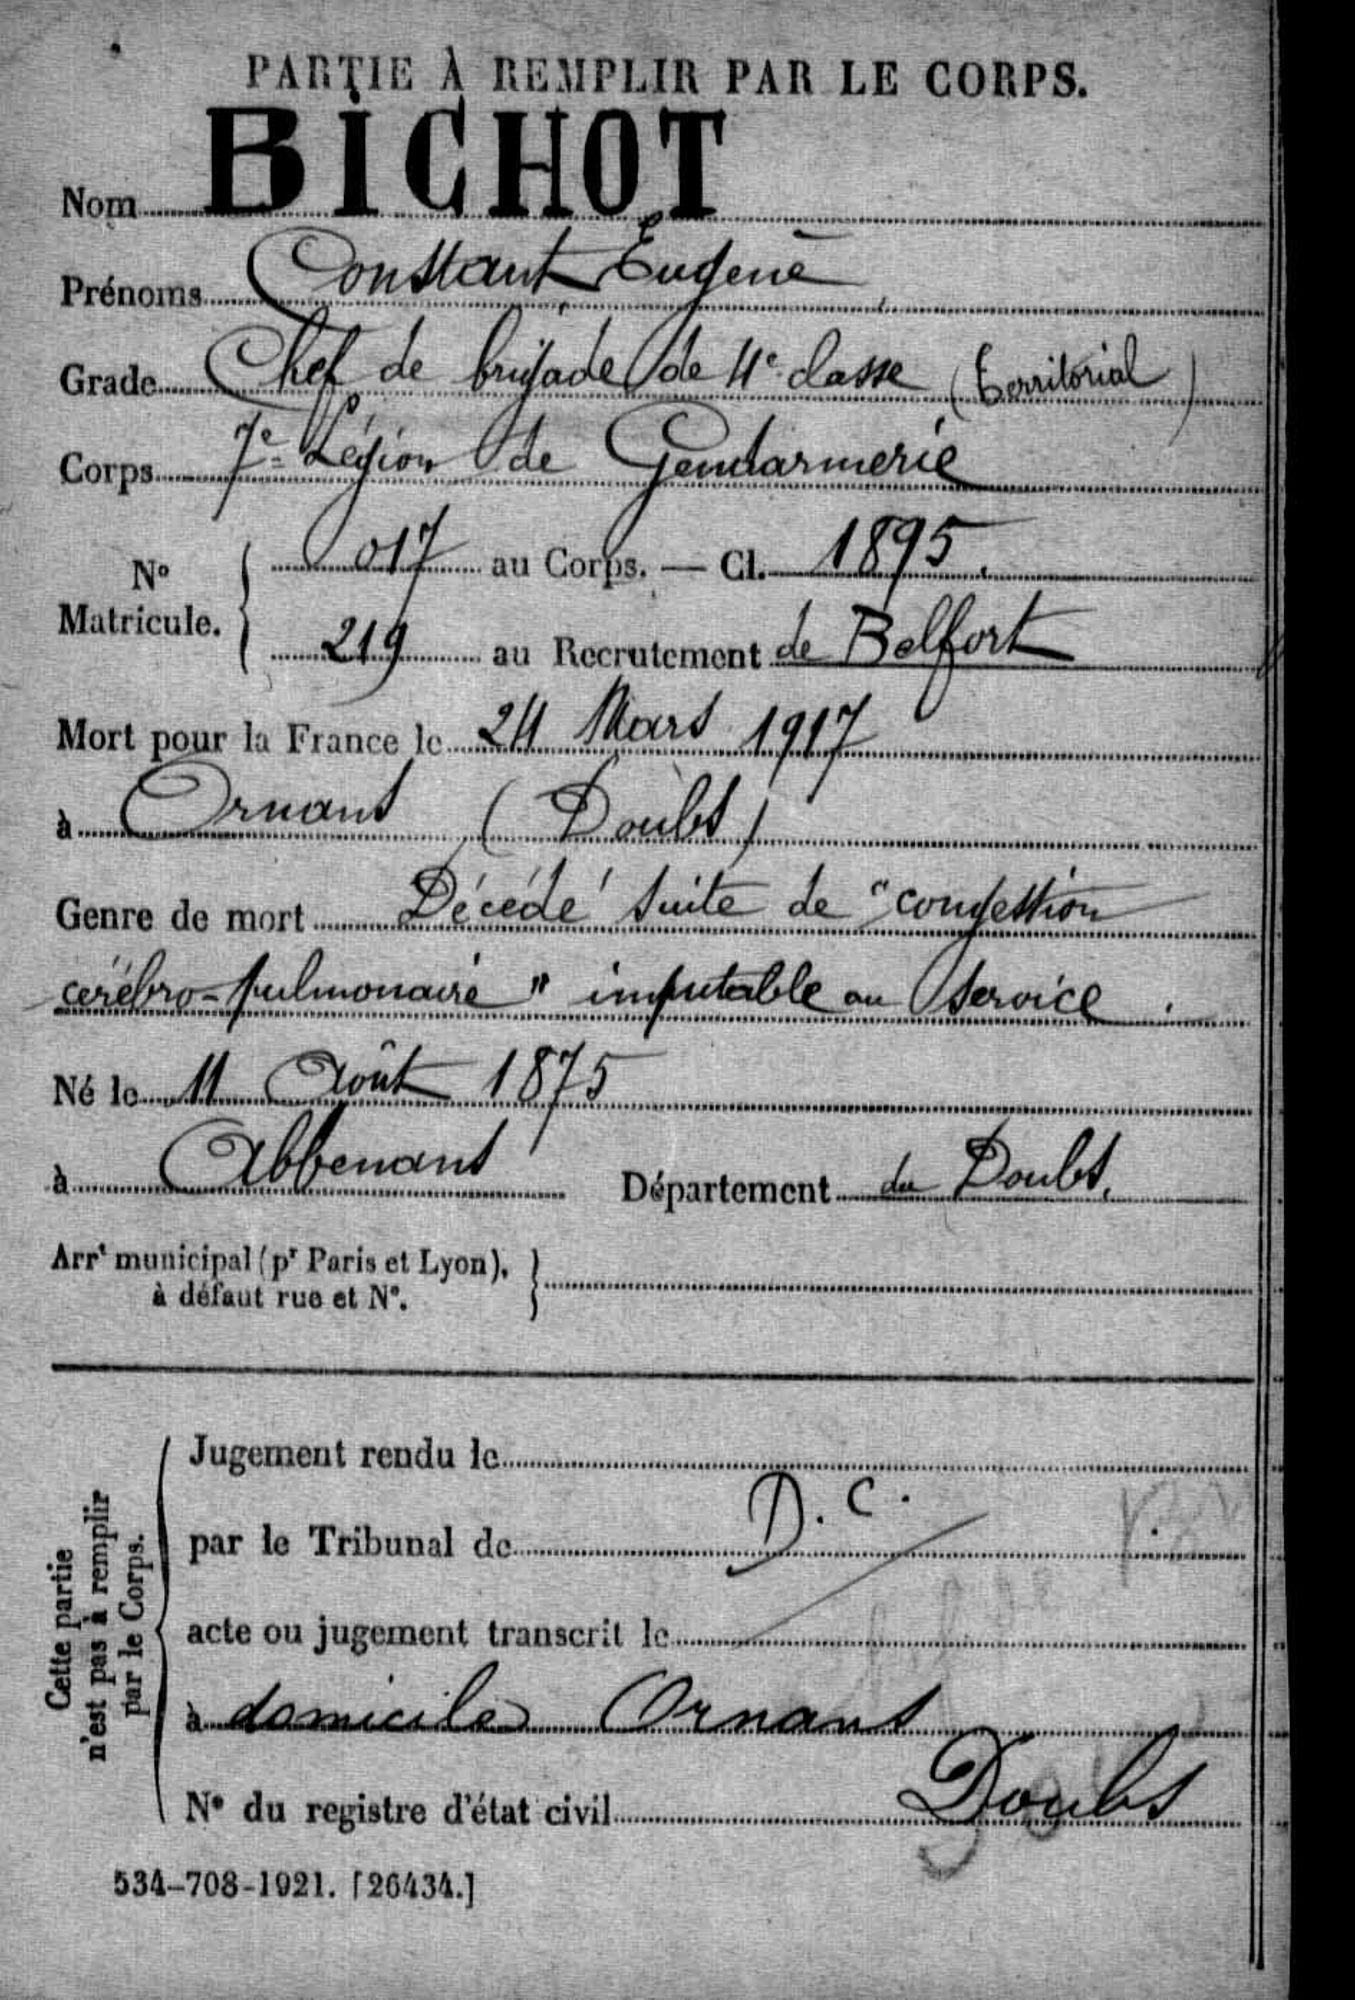 PARTIE À REMPLIR PAR LE CORPS.
Nom BICHOT
Prénoms Constant, Eugène
Grade Chef de brigade de 4e classe (Territorial)
Corps 7e Légion de Gendarmerie
No Matricule. 017 au Corps. — Cl. 1895.
219 au Recrutement de Belfort
Mort pour la France le 24 Mars 1917
à Ornans (Doubs)
Genre de mort Décédé suite de "congestion
cérébro-pulmonaire" imputable au service.
Né le 11 Août 1875
à Abbenans Département du Doubs.
Arrt municipal (pr Paris et Lyon),
à défaut rue et No.
Cette partie
n'est pas à remplir
par le Corps.
Jugement rendu le
par le Tribunal de D.C.
acte ou jugement transcrit le
à domicile Ornans
Doubs
No du registre d'état civil
534-708-1921. [26434.]